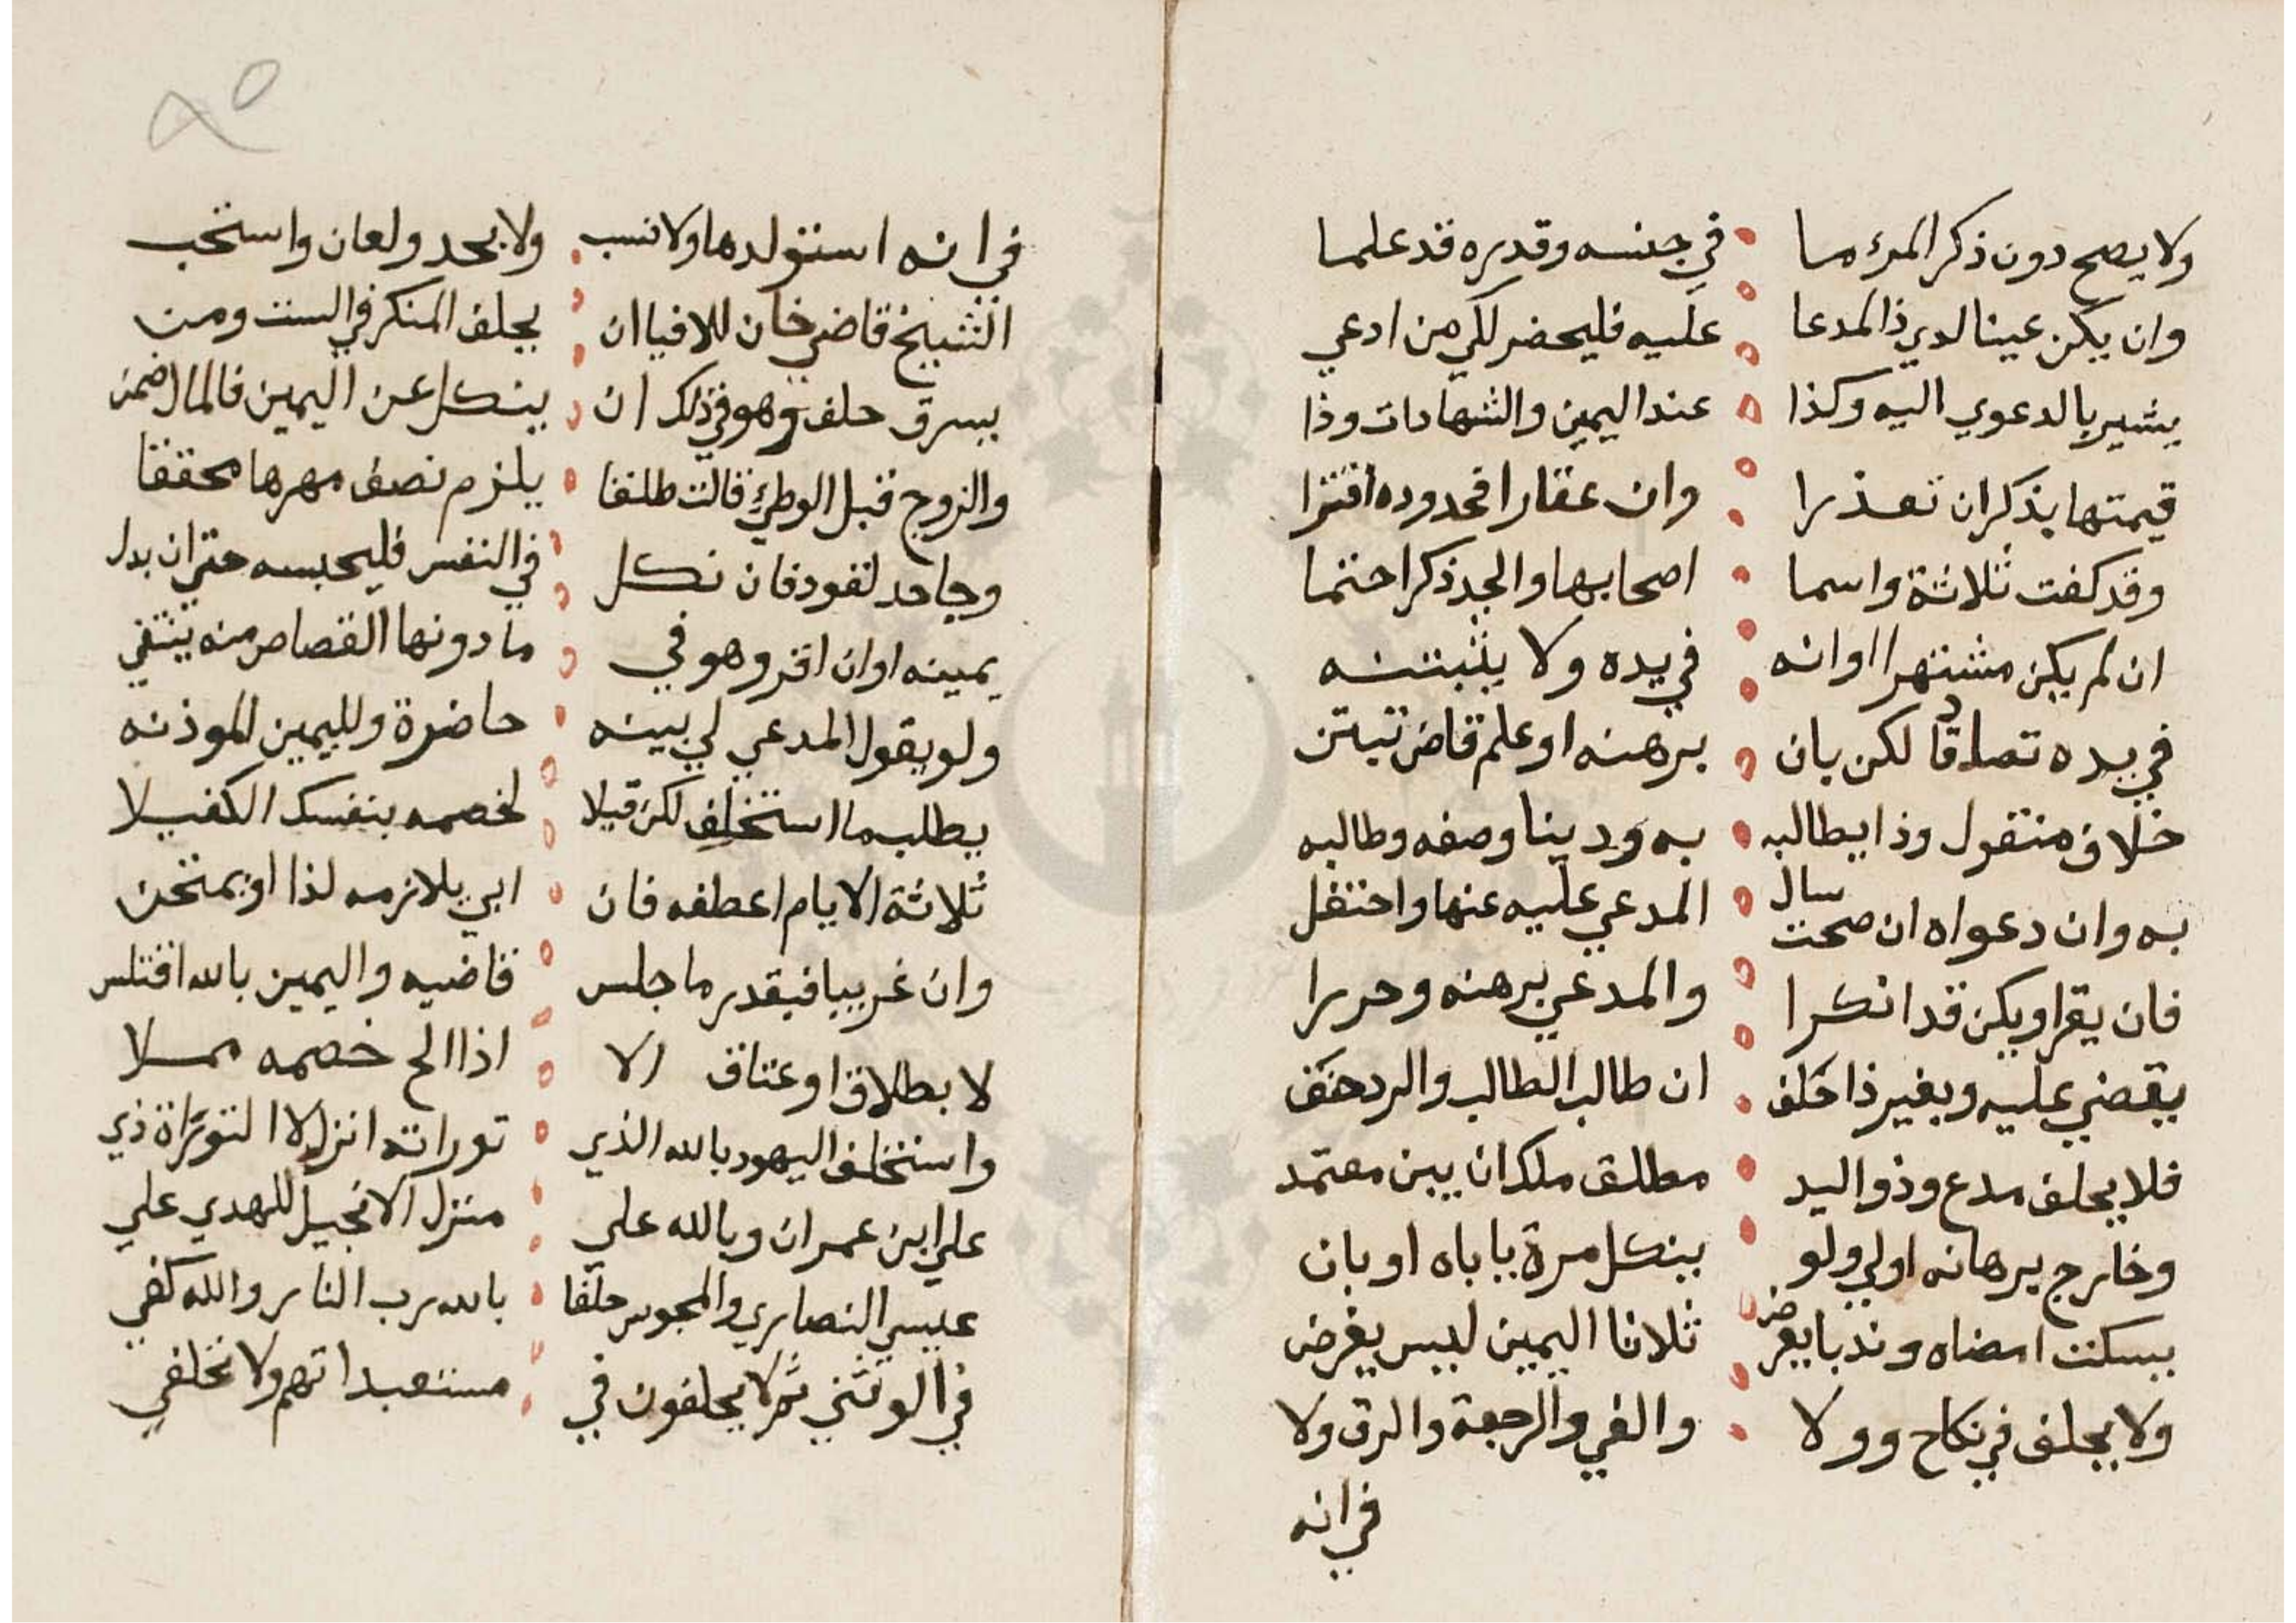 ولا يصح دون ذكر المرء ما في جنسه وقدره قد علما
وان يكن عينا لدي ذا المدعا عليه فليحضر لكي من ادعي
يشير بالدعوي اليه وكذا عند اليمين والشهادات وذا
قيمتها يذكران تعذرا وان عقارا فحدوده اقترا
وقد كفت ثلاثة واسما اصحابها والجد ذكرا حتما
ان لم يكن مشتهرا او انه في يده ولا يثبتنه
في يده تصادقا لكن بان برهنه او علم قاض تبتن
خلاف منقول وذا يطالبه به ودينا وصفه وطالبه
به وان دعواه ان صحت سال المدعي عليه عنها واحتفل
فان يقراو يكن قد انكرا والمدعي برهنه وحررا
يقضي عليه وبغير ذا حلف ان طالب الطالب والرد خفف
فلا يحلف مدع وذو اليد مطلق ملك ان يبن معتمد
وخارج برهانه اولي ولو ينكل مرة باباه او بان
يسكت امضاه وندبا يعرض ثلاثا اليمين ليس يغرض
ولا يحلف في نكاح وولا والفي والرجعة والرق ولا
في انه
في انه استولدها ولا نسب ولا بحد ولعان واستحب
الشيخ قاضي خان للافيا ان يحلف المنكر في الست ومن
يسرق حلف وهو في ذلك ان ينكل عن اليمين فالمال ضمن
والزوج قبل الوطئ قالت طلقا يلزم نصف مهرها محققا
وجاحد لقود فان نكل في النفس فليحبسه حتي ان بدل
يمينه او ان اقر وهو في ما دونها القصاص منه يتقي
ولو يقول المدعي لي بينه حاضرة ولليمين الموذنه
يطلب ما استحلف لكن قيلا لخصمه بنفسك الكفيلا
ثلاثة الايام اعطفه فان ابي يلازمه لذا او يمتحن
وان غريبا فبقدر ما جلس قاضيه واليمين بالله اقتلس
لا بطلاق او عتاق الا اذا الح خصمه مسلا
واستحلف اليهود بالله الذي توراته انزل لا التوراة ذي
علي ابن عمران وبالله علي منزل الانجيل للهدي علي
عيسي النصاري والمجوس حلفا بالله رب النار والله كفي
في الوثني ثم لا يحلفون في مستعبداتهم ولا تحلفي